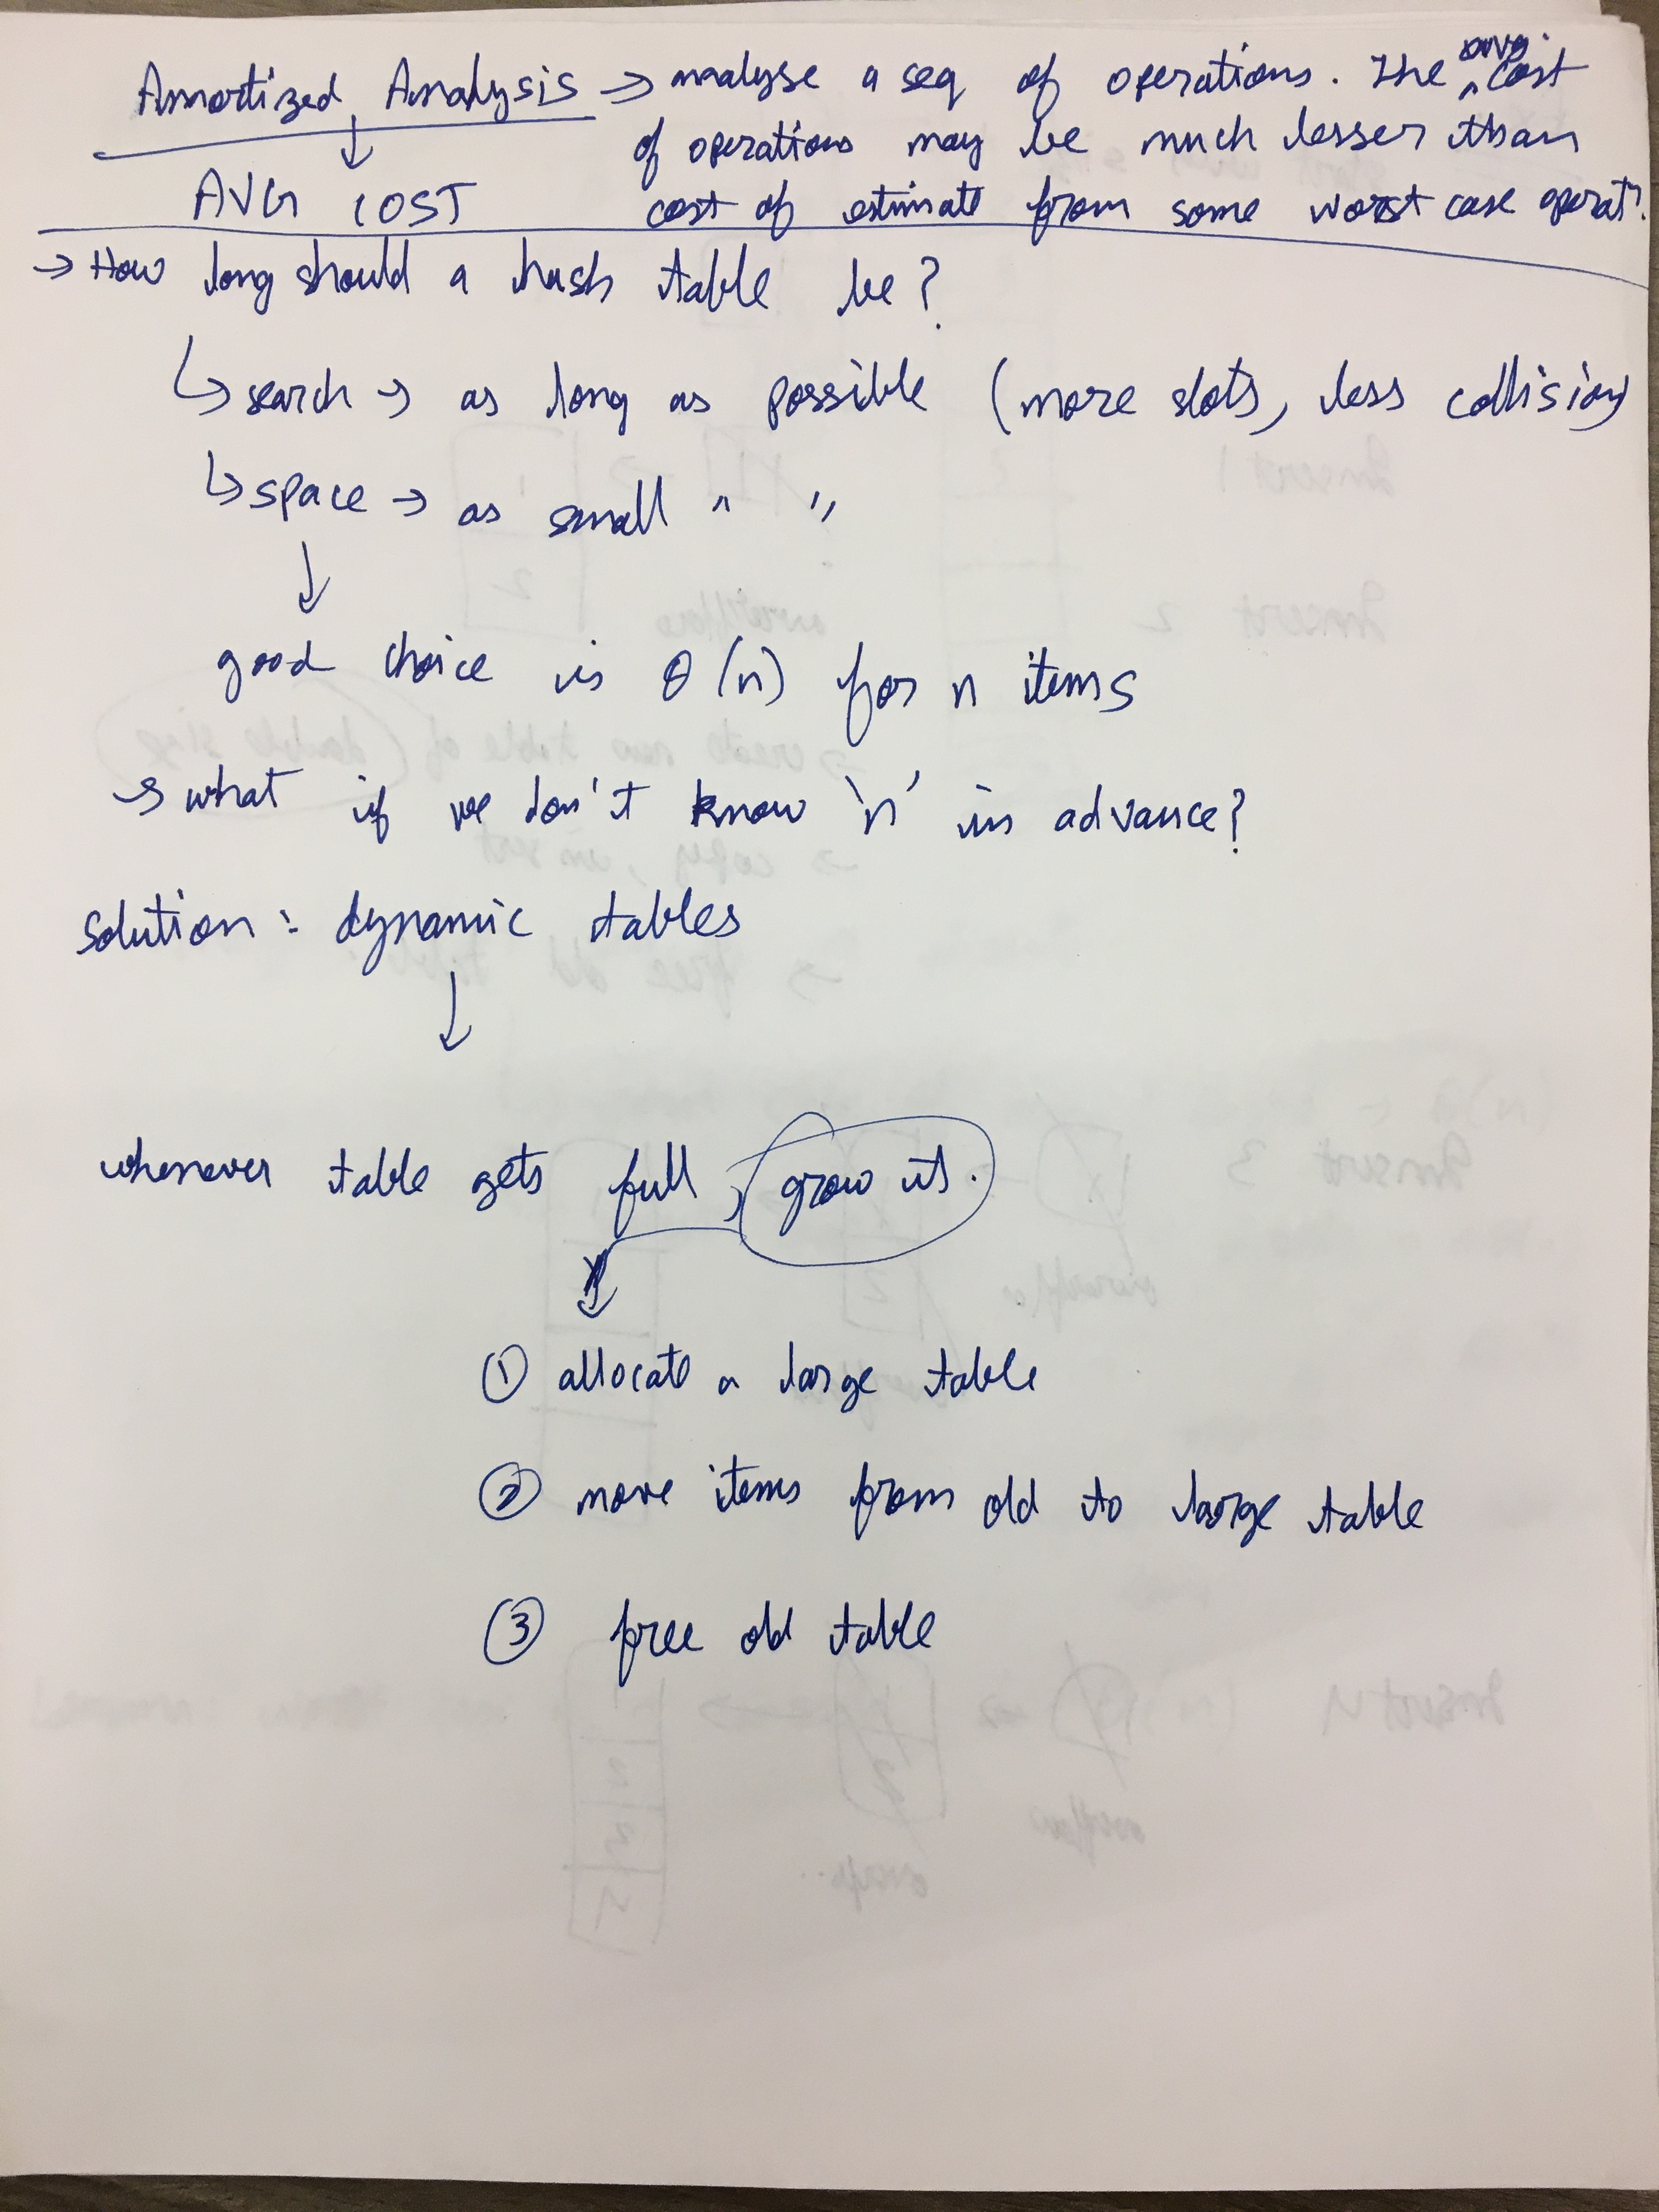 Amortized Analysis → analyse a seq of operations. The avg. cost
of operations may be much lesser than
↓
AVG COST
cost of estimate from some worst case operatn.
→ How long should a hash table be?
↳ search → as long as possible (more slots, less collision)
↳ space → as small " "
↓
good choice is θ(n) for n items
→ what if we don't know 'n' in advance?
solution: dynamic tables
↓
whenever table gets full, grow it.
↓
① allocate a large table
② move items from old to large table
③ free old table